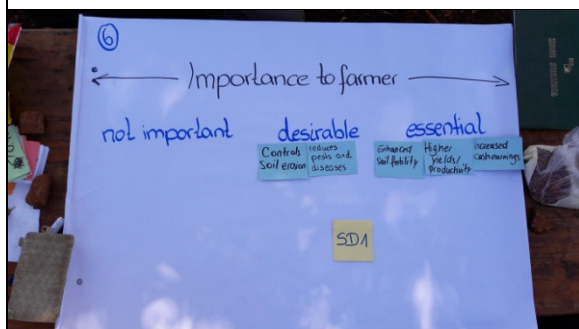 6
Importance to farmer
not important desirable essential
Controls
Soil erosion
reduces
pests and
diseases
Enhanced
Soil fertility
Higher
Yields/
Productivity
Increased
Cash earnings
SD1